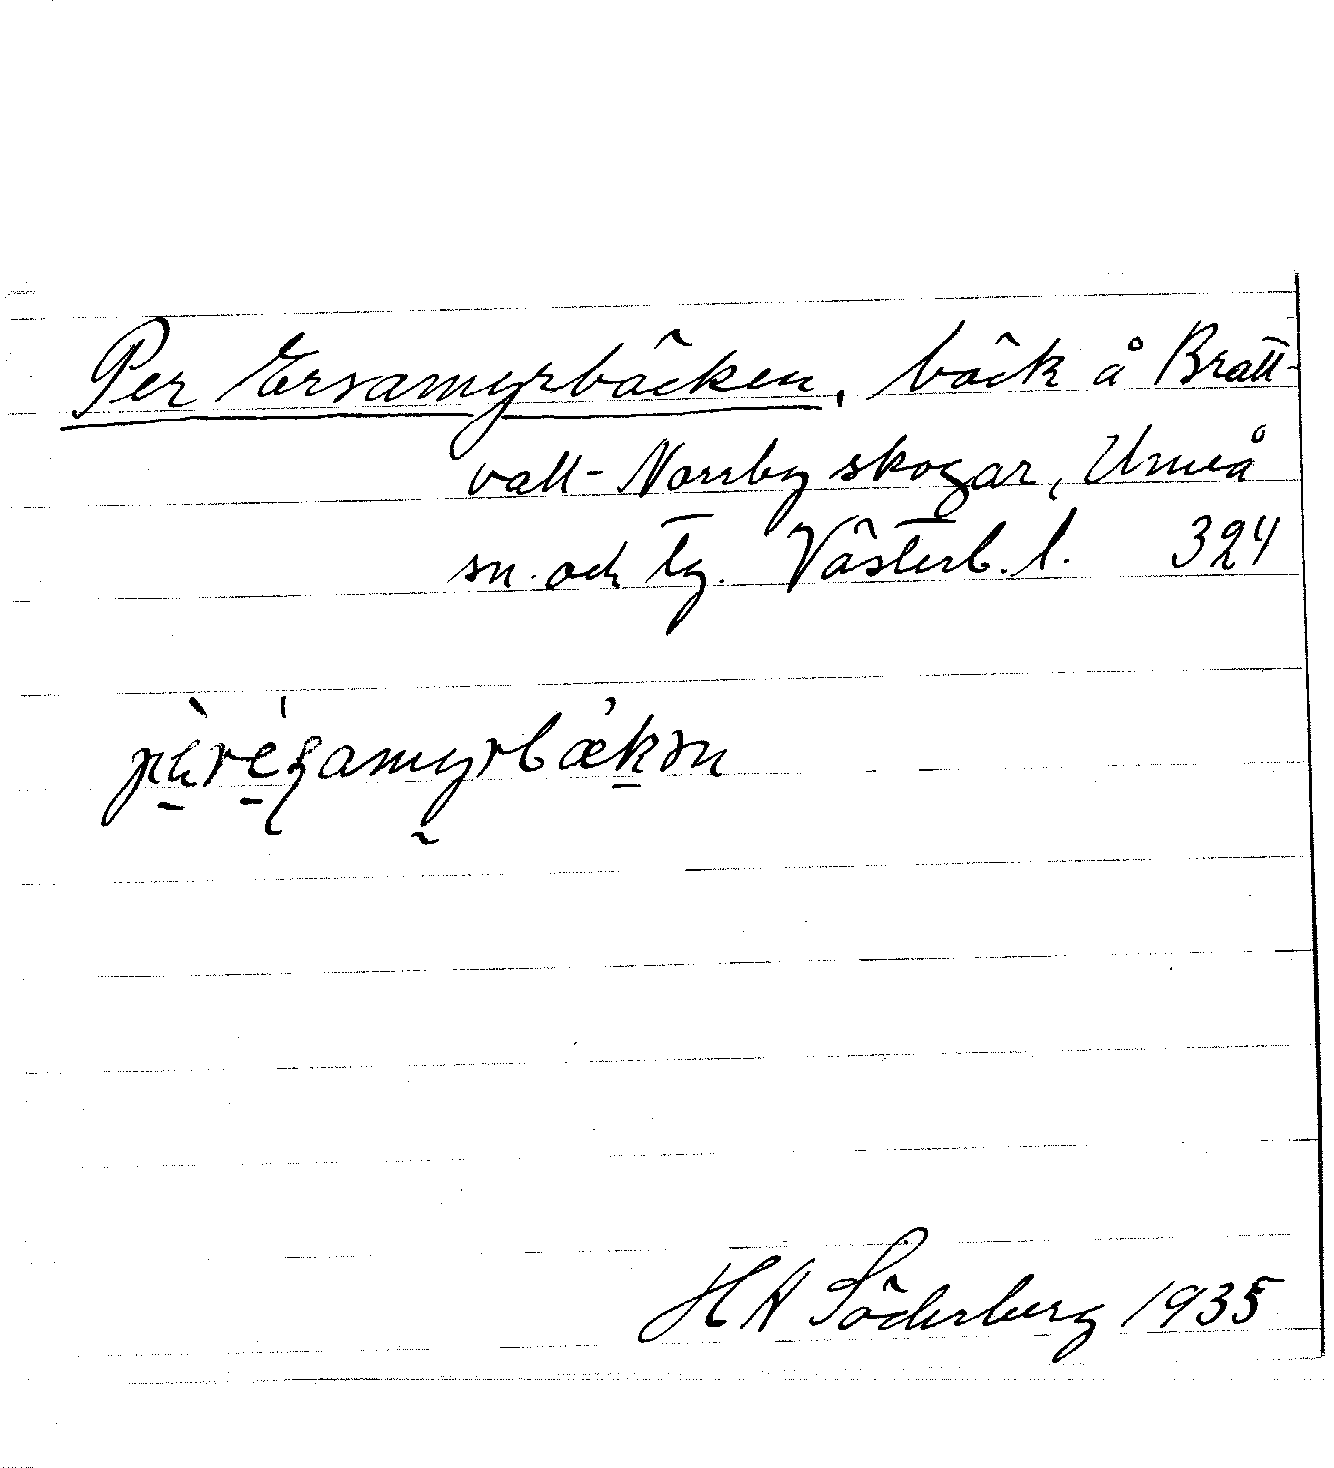 Per Ersamyrbäcken, bäck å Bratt-
vall-Norrby skogar, Umeå
sn. och tg. Västerb. l. 324
HA Söderberg 1935